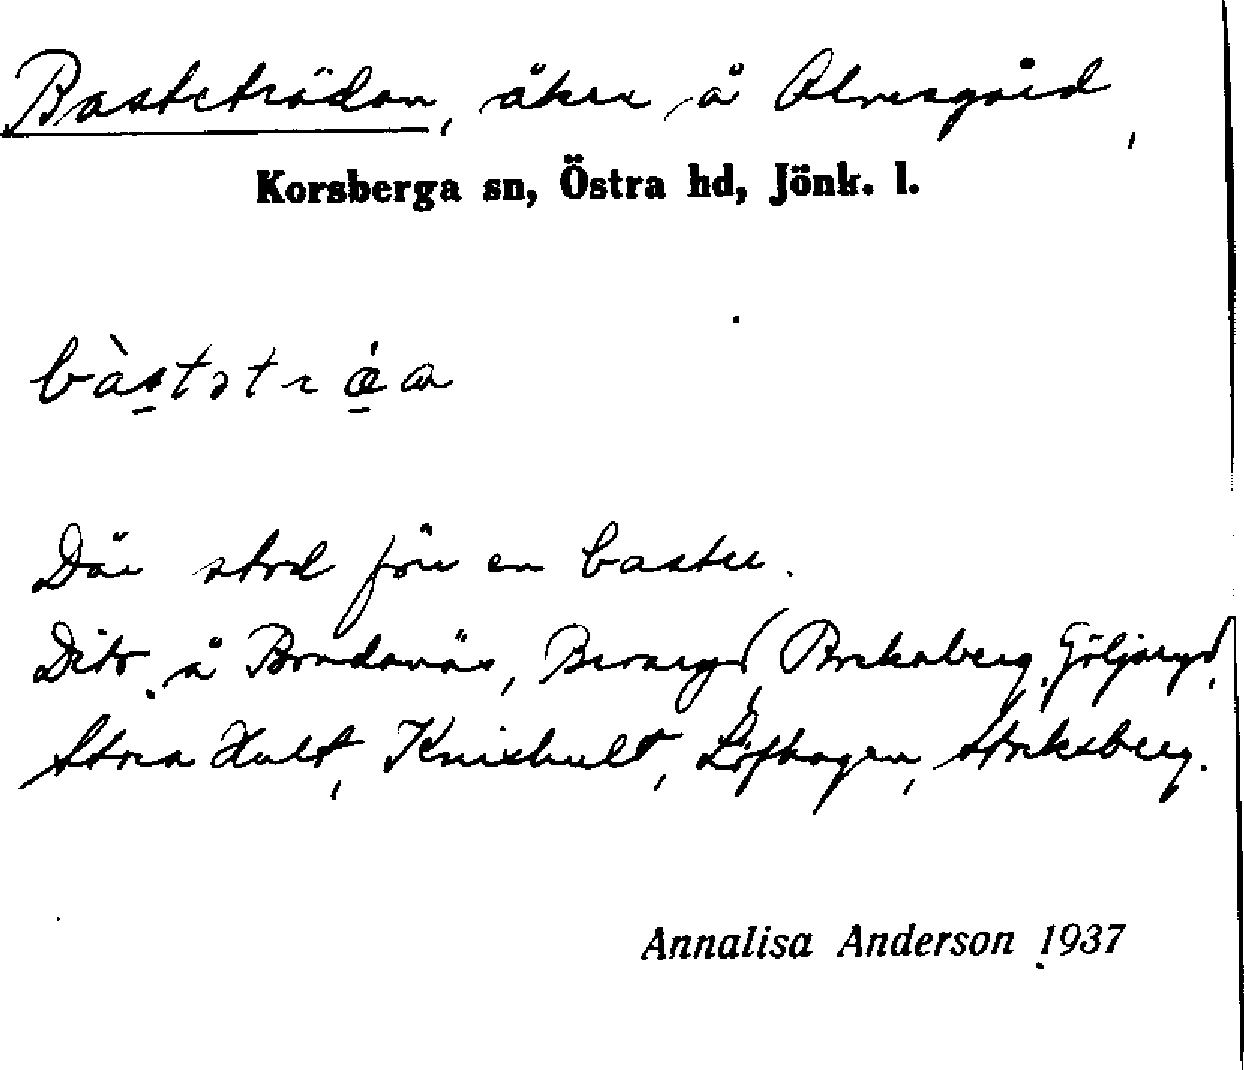 Basteträdan, åker å Almsgård,
Korsberga sn, Östra hd, Jönk. l.
bàstətræa
Där stod förr en bastu.
Dito å Brodanäs, Bockaberg, Göljaryd,
Stora Hult, Knixhult, Löfhagen, Stocksberg.
Annalisa Anderson 1937